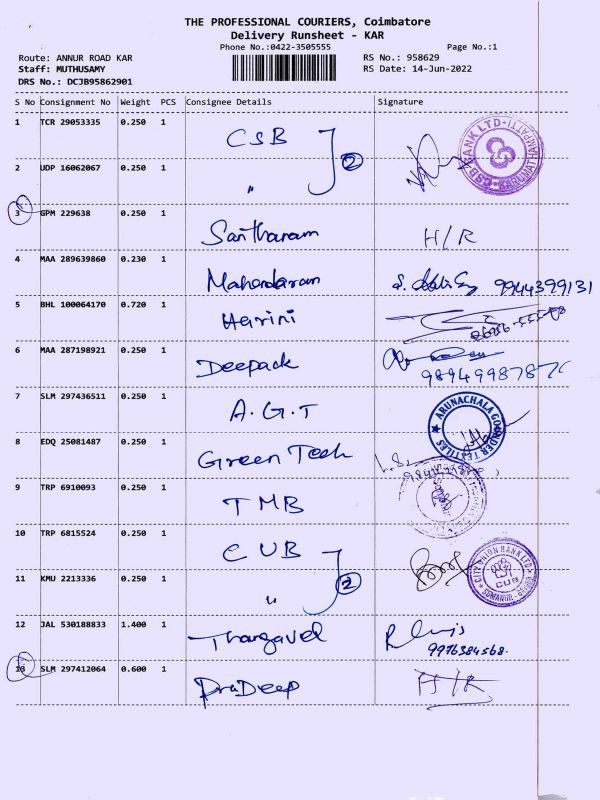 THE PROFESSIONAL COURIERS, Coimbatore
Delivery Runsheet - KAR
Phone No.:0422-3505555
Page No.:1
Route: ANNUR ROAD KAR
RS No.: 958629
Staff: MUTHUSAMY
RS Date: 14-Jun-2022
DRS No.: DCJB95862901
S No Consignment No Weight PCS Consignee Details Signature
1 TCR 29053335 0.250 1 CSB 2
CSB BANK LTD
2 UDP 16062067 0.250 1 "
3 GPM 229638 0.250 1 Santharam H/R
4 MAA 289639860 0.230 1 Mahendaram 9944399131
5 BHL 100064170 0.720 1 Harini
6 MAA 287198921 0.250 1 Deepack
7 SLM 297436511 0.250 1 A.G.T
ARUNACHALA GOUNDER TEXTILES
8 EDQ 25081487 0.250 1 Green Tech
9 TRP 6910093 0.250 1 TMB
10 TRP 6815524 0.250 1 CUB 2
CITY UNION BANK LTD
CUB
11 KMU 2213336 0.250 1 "
12 JAL 530188833 1.400 1 Thangavel 9976384568.
13 SLM 297412064 0.600 1 PraDeep H/R